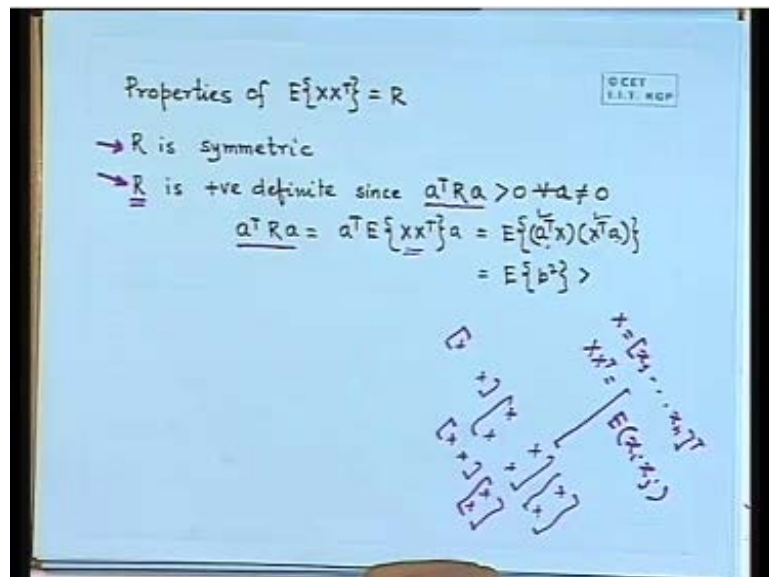 Properties of E{XXᵀ} = R
© CET
I.I.T. KGP
→ R is symmetric
→ R is +ve definite since aᵀRa > 0 ∀ a ≠ 0
aᵀRa = aᵀE{XXᵀ}a = E{(aᵀx)(xᵀa)}
= E{b²} >
x = [x₁ . . . xₙ]ᵀ
XXᵀ =
E(xᵢxⱼ)